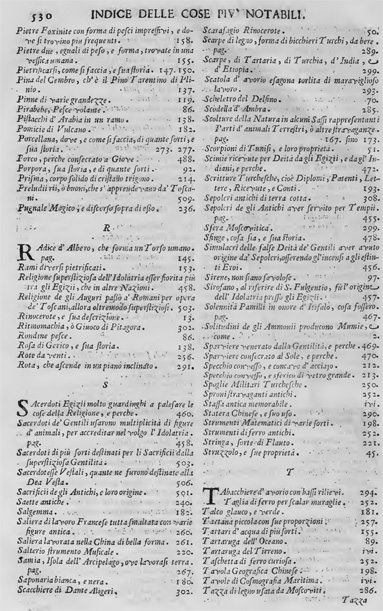 530 INDICE DELLE COSE PIV' NOTABILI.
Pietre Foxinite con forma di pesci impressivi, e do-
ve si trovino piu frequenti. 158.
Pietre due, eguali di peso, e forma, trovate in una
vessica umana. 155.
Pietrificarsi, come si faccia, e sua storia. 147. 150.
Pina del Cembro, ch'è il Pino Taremtino di Pli-
nio. 137.
Pinne di varie grandezze. 119.
Pirabebe, Pesce volante. 86.
Pistacchi d'Arabia in un ramo. 138.
Pomicie di Vulcano. 182.
Porcellana, dove, e come si faccia, di quante sorti, e
sua storia. 273. 277.
Porco, perche consecrato a Giove. 488.
Porpora, sua storia, e di quante sorti. 92.
Prisma, corpo solido di cristallo trigono. 214.
Preludii rii, ò buoni, che s'apprendevano da' Tosca-
ni. 509.
Pugnale Magico, e discorso sopra di esso. 236.
R
RAdice d'Albero, che forma un Torso umano.
pag. 145.
Rami diversi pietrificati. 153.
Religione superstiziosa dell'Idolatria esser fiorita più
tra gli Egizii, che in altre Nazioni. 458.
Religione de gli Auguri passò a' Romani per opera
de' Toscani, allora oltremodo superstiziosi. 503.
Rinocerote, e sua descrizione. 13.
Ritmomachia, ò Giuoco di Pitagora. 302.
Rondine pesce. 86.
Rosa di Gerico, e sua storia. 138.
Rote da venti. 256.
Rota, che ascende in un piano inclinato. 291.
S
SAcerdoti Egizii molto guardinghi a palesare le
cose della Religione, e perche. 460.
Sacerdoti de' Gentili usarono multiplicità di figure
d'animali, per accreditar nel volgo l'Idolatria.
pag. 458.
Sacerdoti di più sorti destinati per li Sacrificii dalla
superstiziosa Gentilità. 503.
Sacerdotesse Vestali, quante ne furono destinate alla
Dea Vesta. 506.
Sacrificii de gli Antichi, e loro origine. 501.
Saette antiche. 240.
Salgemma. 182.
Saliera di lavoro Francese tutta smaltata con varie
figure antica. 260.
Saliera lavorata nella China di bella forma. 261.
Salterio strumento Musicale. 220.
Samia, Isola dell'Arcipelago, ove lavorasi terra.
pag. 267.
Saponaria bianca, e nera. 180.
Scacchiero di Dante Aligeri. 302.
Scarafagio Rinocerote. 50.
Scarpe di legno, forma di bicchieri Turchi, da bere
pag. 289.
Scarpe, di Tartaria, di Turchia, d'India,
d'Etiopia. 299.
Scatola d'avorio esagona tortita di maraviglioso
lavoro. 293.
Scheletro del Delfino. 70.
Scodella d'Ambra. 285.
Scolture della Natura in alcuni Sassi rappresentanti
Parti d'animali Terrestri, ò altre stravaganze.
pag. 167. sino 173.
Scorpioni di Tunisi, e loro proprietà. 51.
Scimie ricevute per Deità da gli Egizii, e dagl'In-
diani, e perche. 472.
Scritture Turchesche, cioè Diplomi, Patenti, Let-
tere, Ricevute, e Conti. 193.
Sepolcri antichi di terra cotta. 308.
Sepolcri de gli Antichi aver servito per Tempii.
pag. 455.
Sfera Moscovitica. 299.
Sfinge, cosa sia, e sua storia. 478.
Simulacri delle false Deità de' Gentili aver avuto
origine da' Sepolcri, offerendo gl'incensi a gli estin-
ti Eroi. 456.
Sirene, non siano favolose. 97.
Sirofano, al riferire di S. Fulgentio, fu l'origine
dell'Idolatria presso gli Egizii. 457.
Solemnità Pamilii in onore d'Isifalo, cosa fossero
pag. 467.
Solitudini de gli Ammonii producono Mumie,
come. 2.
Sparviere venerato dalla Gentilità, e perche. 469.
Sparviere consecrato al Sole, e perche. 470.
Specchio convesso, e concavo d'acciajo. 212.
Specchio convesso, e sferico di vetro grande. 213.
Spoglie Militari Turchesche. 250.
Sproni stravaganti antichi. 252.
Staffa antica memorabile. ivi.
Statera Chinese, e suo uso. 290.
Strumenti Matematici di varie sorti. 198.
Strumenti di ferro antichi. 252.
Stringa, sorte di Flauto. 221.
Struzzolo, e sue proprietà. 45.
T
TAbacchiere d'avorio con bassi rilievi. 294.
Taglia di ferro per scalar muraglie. 252.
Talco glauco, e verde. 181.
Tartana piccola con sue proporzioni. 257.
Tartari d'acqua di più sorti. 155.
Tartaruga dell'Oceano. 89.
Tartaruga del Tirreno. ivi.
Taschetta di ferro curiosa. 252.
Tavola Geografica Chinese. 198.
Tavole di Cosmografia Maritima. ivi.
Tazza di legno usata da Moscoviti. 286.
Tazza